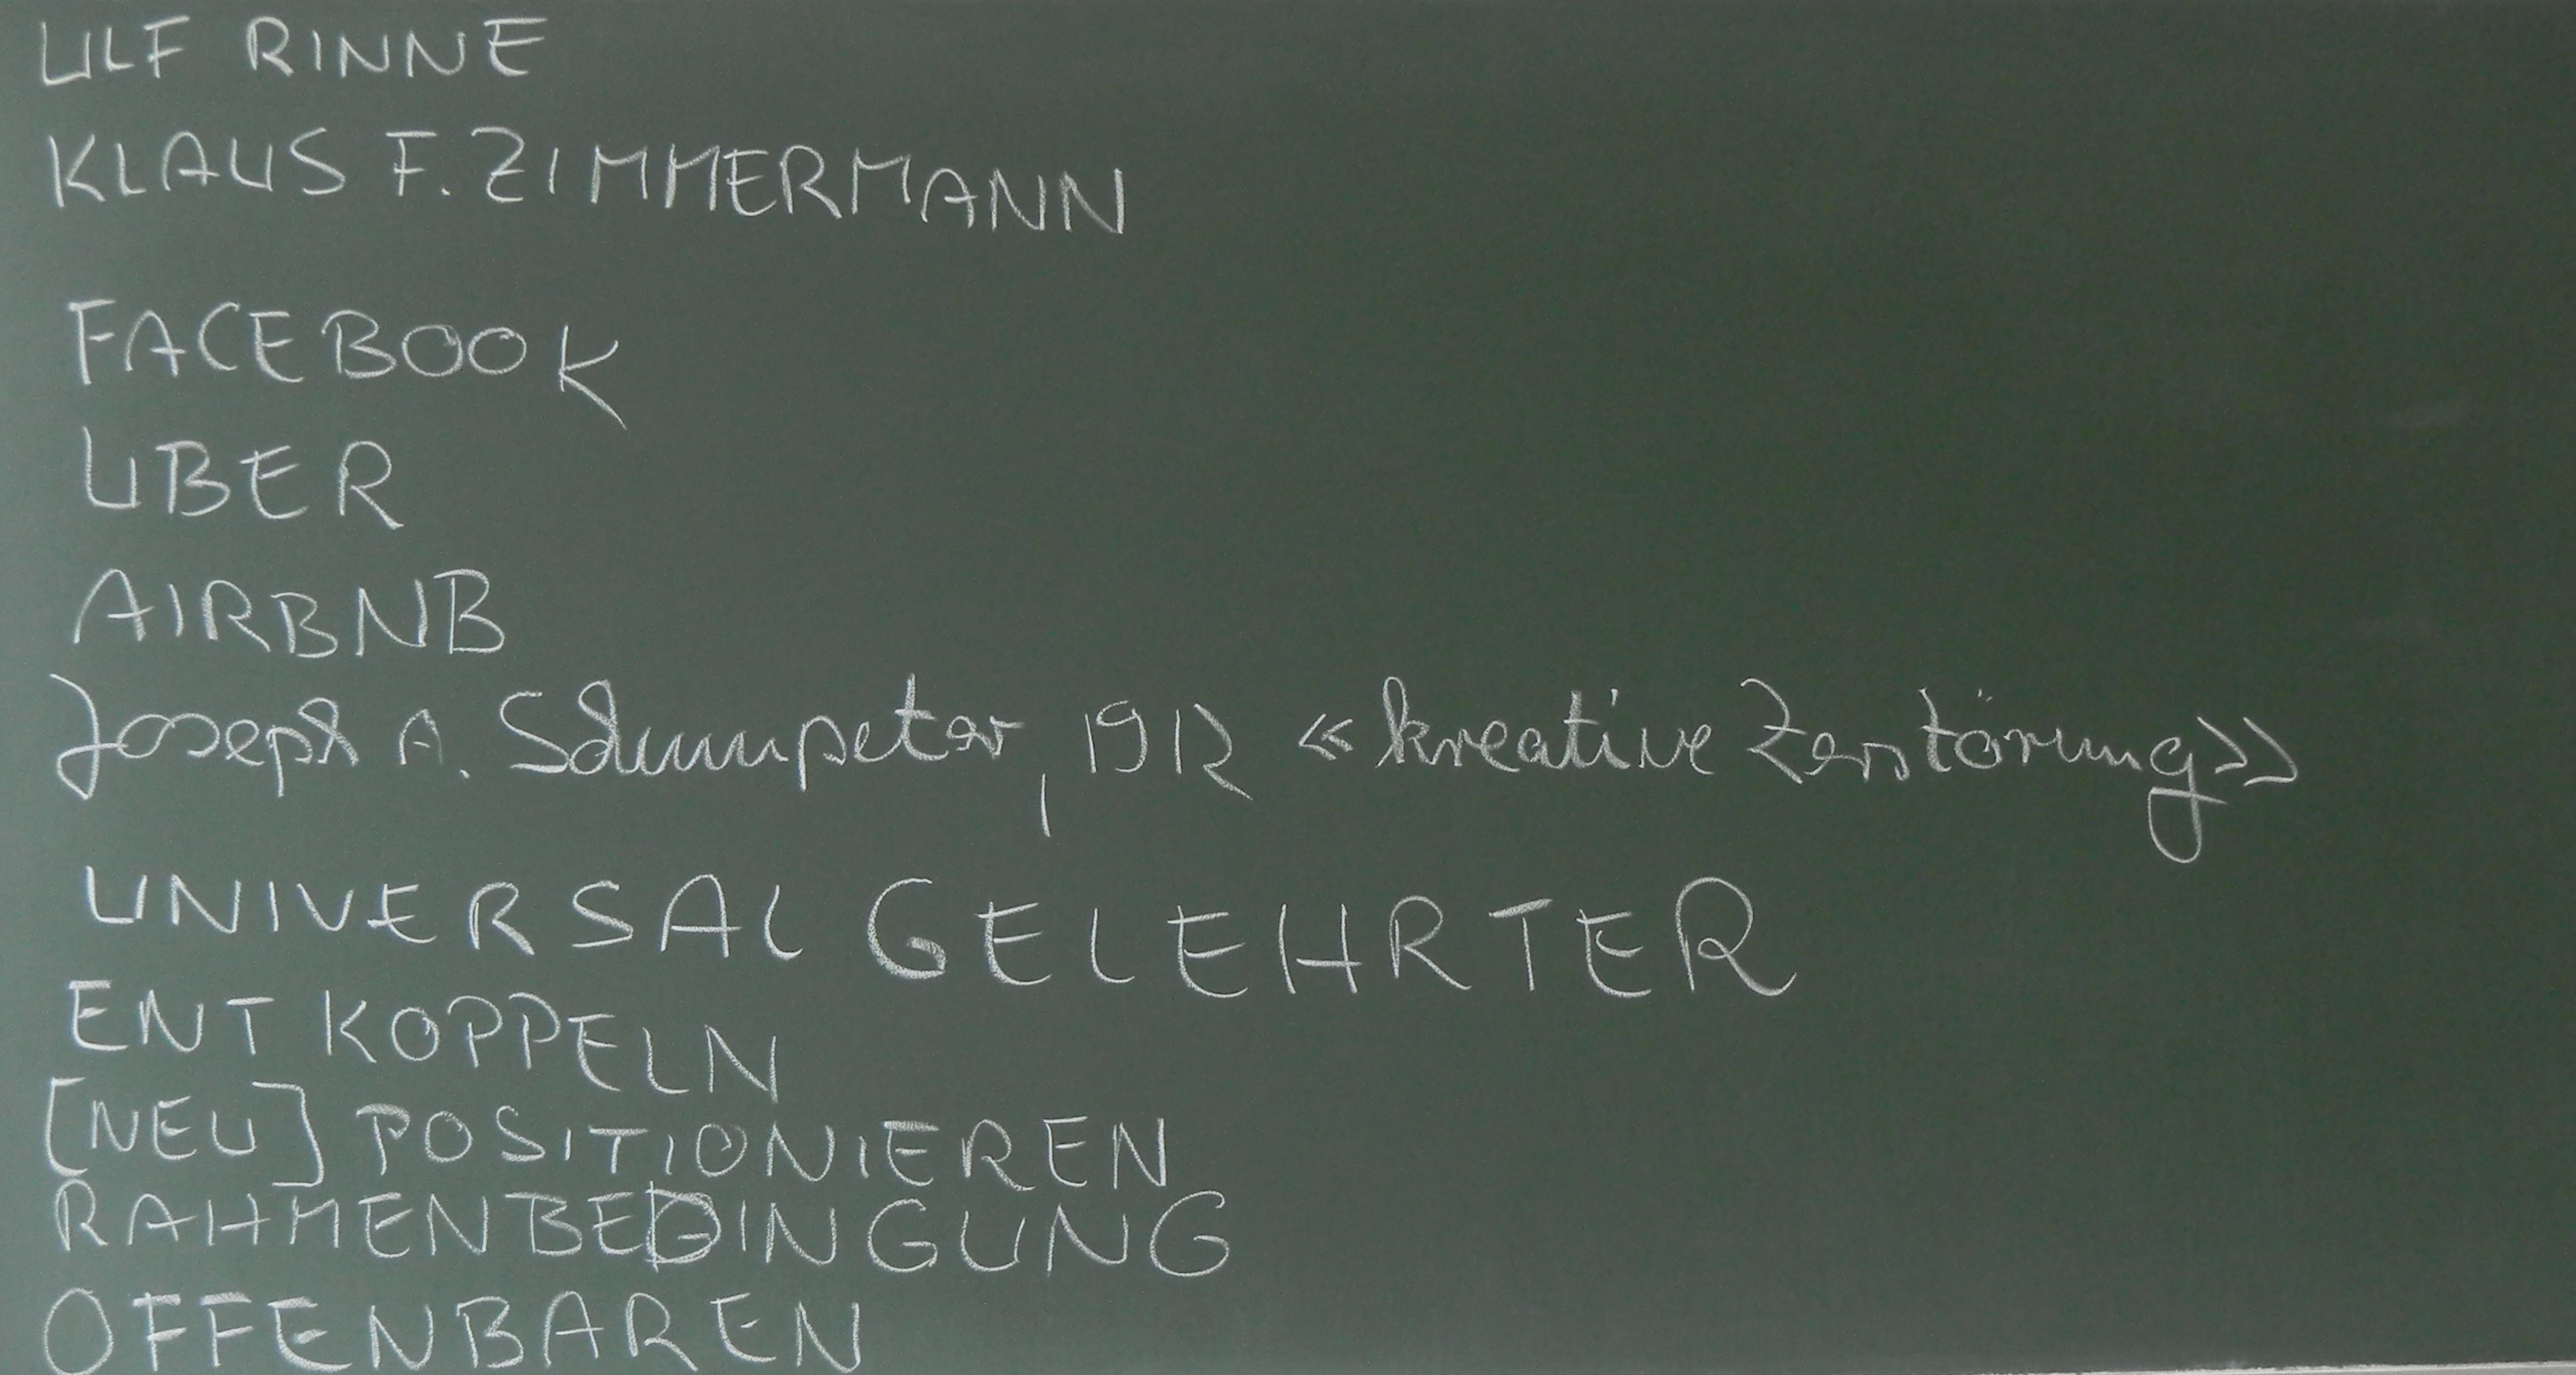 ULF RINNE
KLAUS F. ZIMMERMANN
FACEBOOK
UBER
AIRBNB
Joseph A. Schumpeter, 1912 «kreative Zerstörung»
UNIVERSAL GELEHRTER
ENTKOPPELN
[NEU] POSITIONIEREN
RAHMENBEDINGUNG
OFFENBAREN